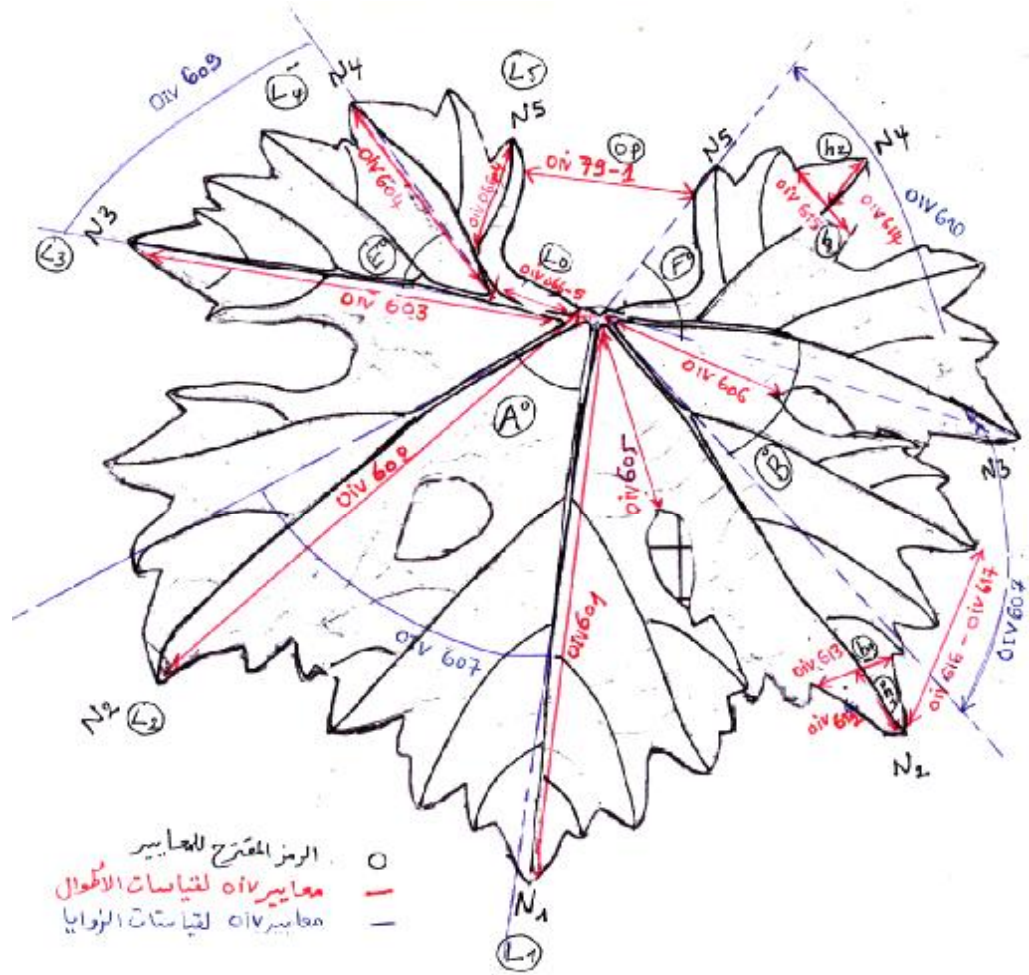 OIV 609
L4
N4
L5
N5
OP
OIV 79-1
N5
h2
N4
OIV 604
OIV 066-4
OIV 615
OIV 614
OIV 610
N3
L3
E°
L0
OIV 066-5
F°
OIV 603
A°
OIV 606
OIV 605
°B
N3
OIV 602
OIV 601
OIV 607
OIV 607
OIV 616 - OIV 617
OIV 613
h1
OIV 612
N2
L2
N2
الرمز المقترح للمعايير
معايير OIV لقياسات الأطوال
معايير OIV لقياسات الزوايا
N1
L1